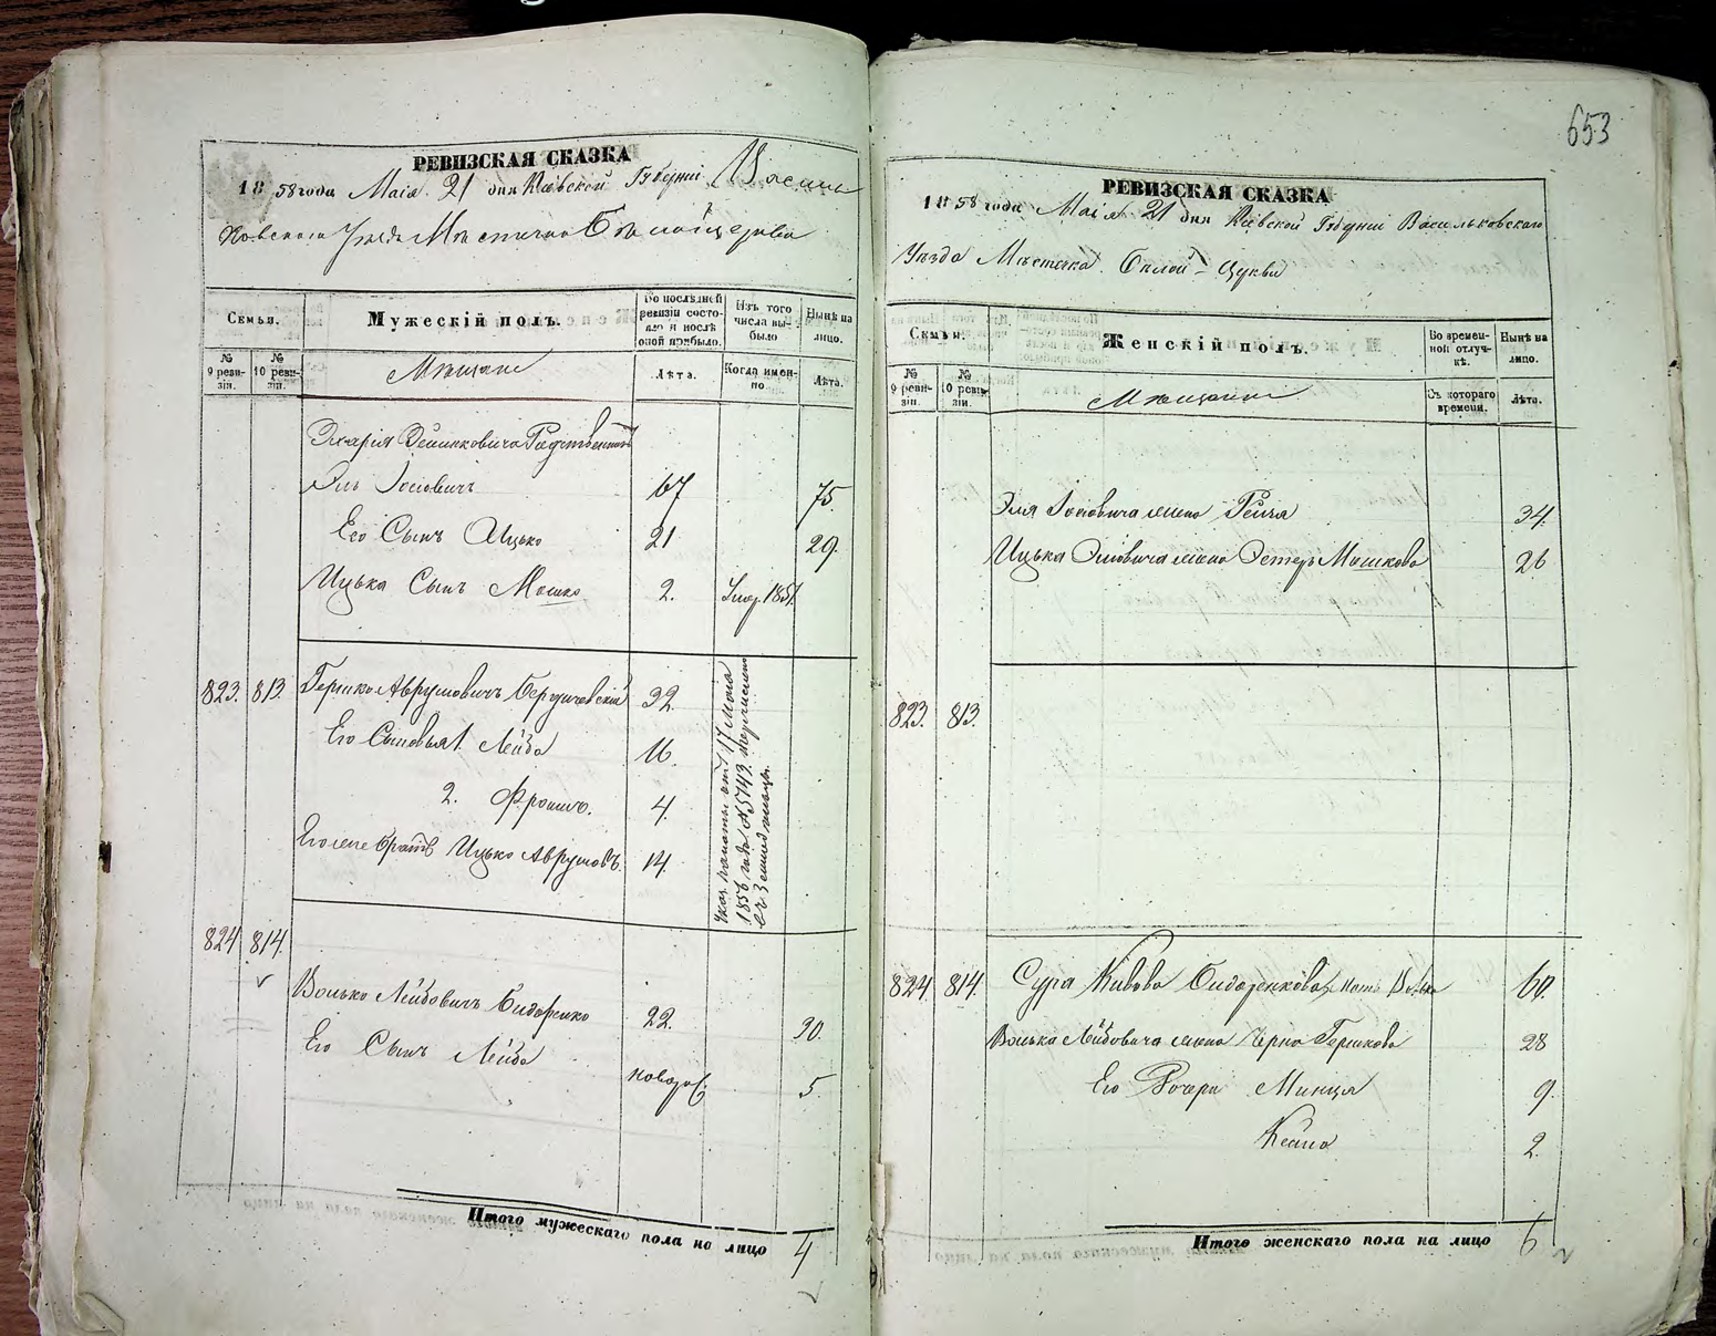 653
РЕВИЗСКАЯ СКАЗКА
1858 года Маія 21 дня Кіевской Губерніи Василь
ковскаго Уезда Местечка Белойцеркви
Семьи.
Мужескій полъ.
Во последней ревизіи состояло и после оной прибыло.
Изъ того числа выбыло
Ныне на лицо.
№ 9 ревизіи.
№ 10 ревизіи.
Мещане
Лета.
Когда именно
Лета.
Родственникъ
Эль Іосіовичъ 67 75.
Его Сынъ Ицько 21 29.
Ицька Сынъ Мошко 2. Умер. 1851.
823. 813 Гершко Аврумовичъ Бердичевскій 32.
Его Сыновья 1. Лейба 16.
2. Фроимъ. 4.
Его же братъ Ицько Аврумовъ. 14.
Указ. палаты отъ 17 Маія
1856 года № 5743 перечислены
въ Земледельцы.
824 814.
Волько Лейбовичъ Бидоренко 22. 30.
Его Сынъ Лейба новорож. 5.
Итого мужескаго пола на лицо 4
РЕВИЗСКАЯ СКАЗКА
1858 года Маія 21 дня Кіевской Губерніи Васильковскаго
Уезда Местечка Белой-Церкви
Семьи.
Женскій полъ.
Во временной отлучке.
Ныне на лицо.
№ 9 ревизіи.
№ 10 ревизіи.
Мещанки
Съ котораго времени.
Лета.
Эля Іосіовича жена Рейзя 34.
Ицька Эліовича жена Эстеръ Мошкова 26
823. 813.
824. 814. Сура Кивова Бидоренкова мать Волька 60.
Волька Лейбовича жена Черна Гершкова 28
Его Дочери Минця 9.
Кейла 2.
Итого женскаго пола на лицо 6